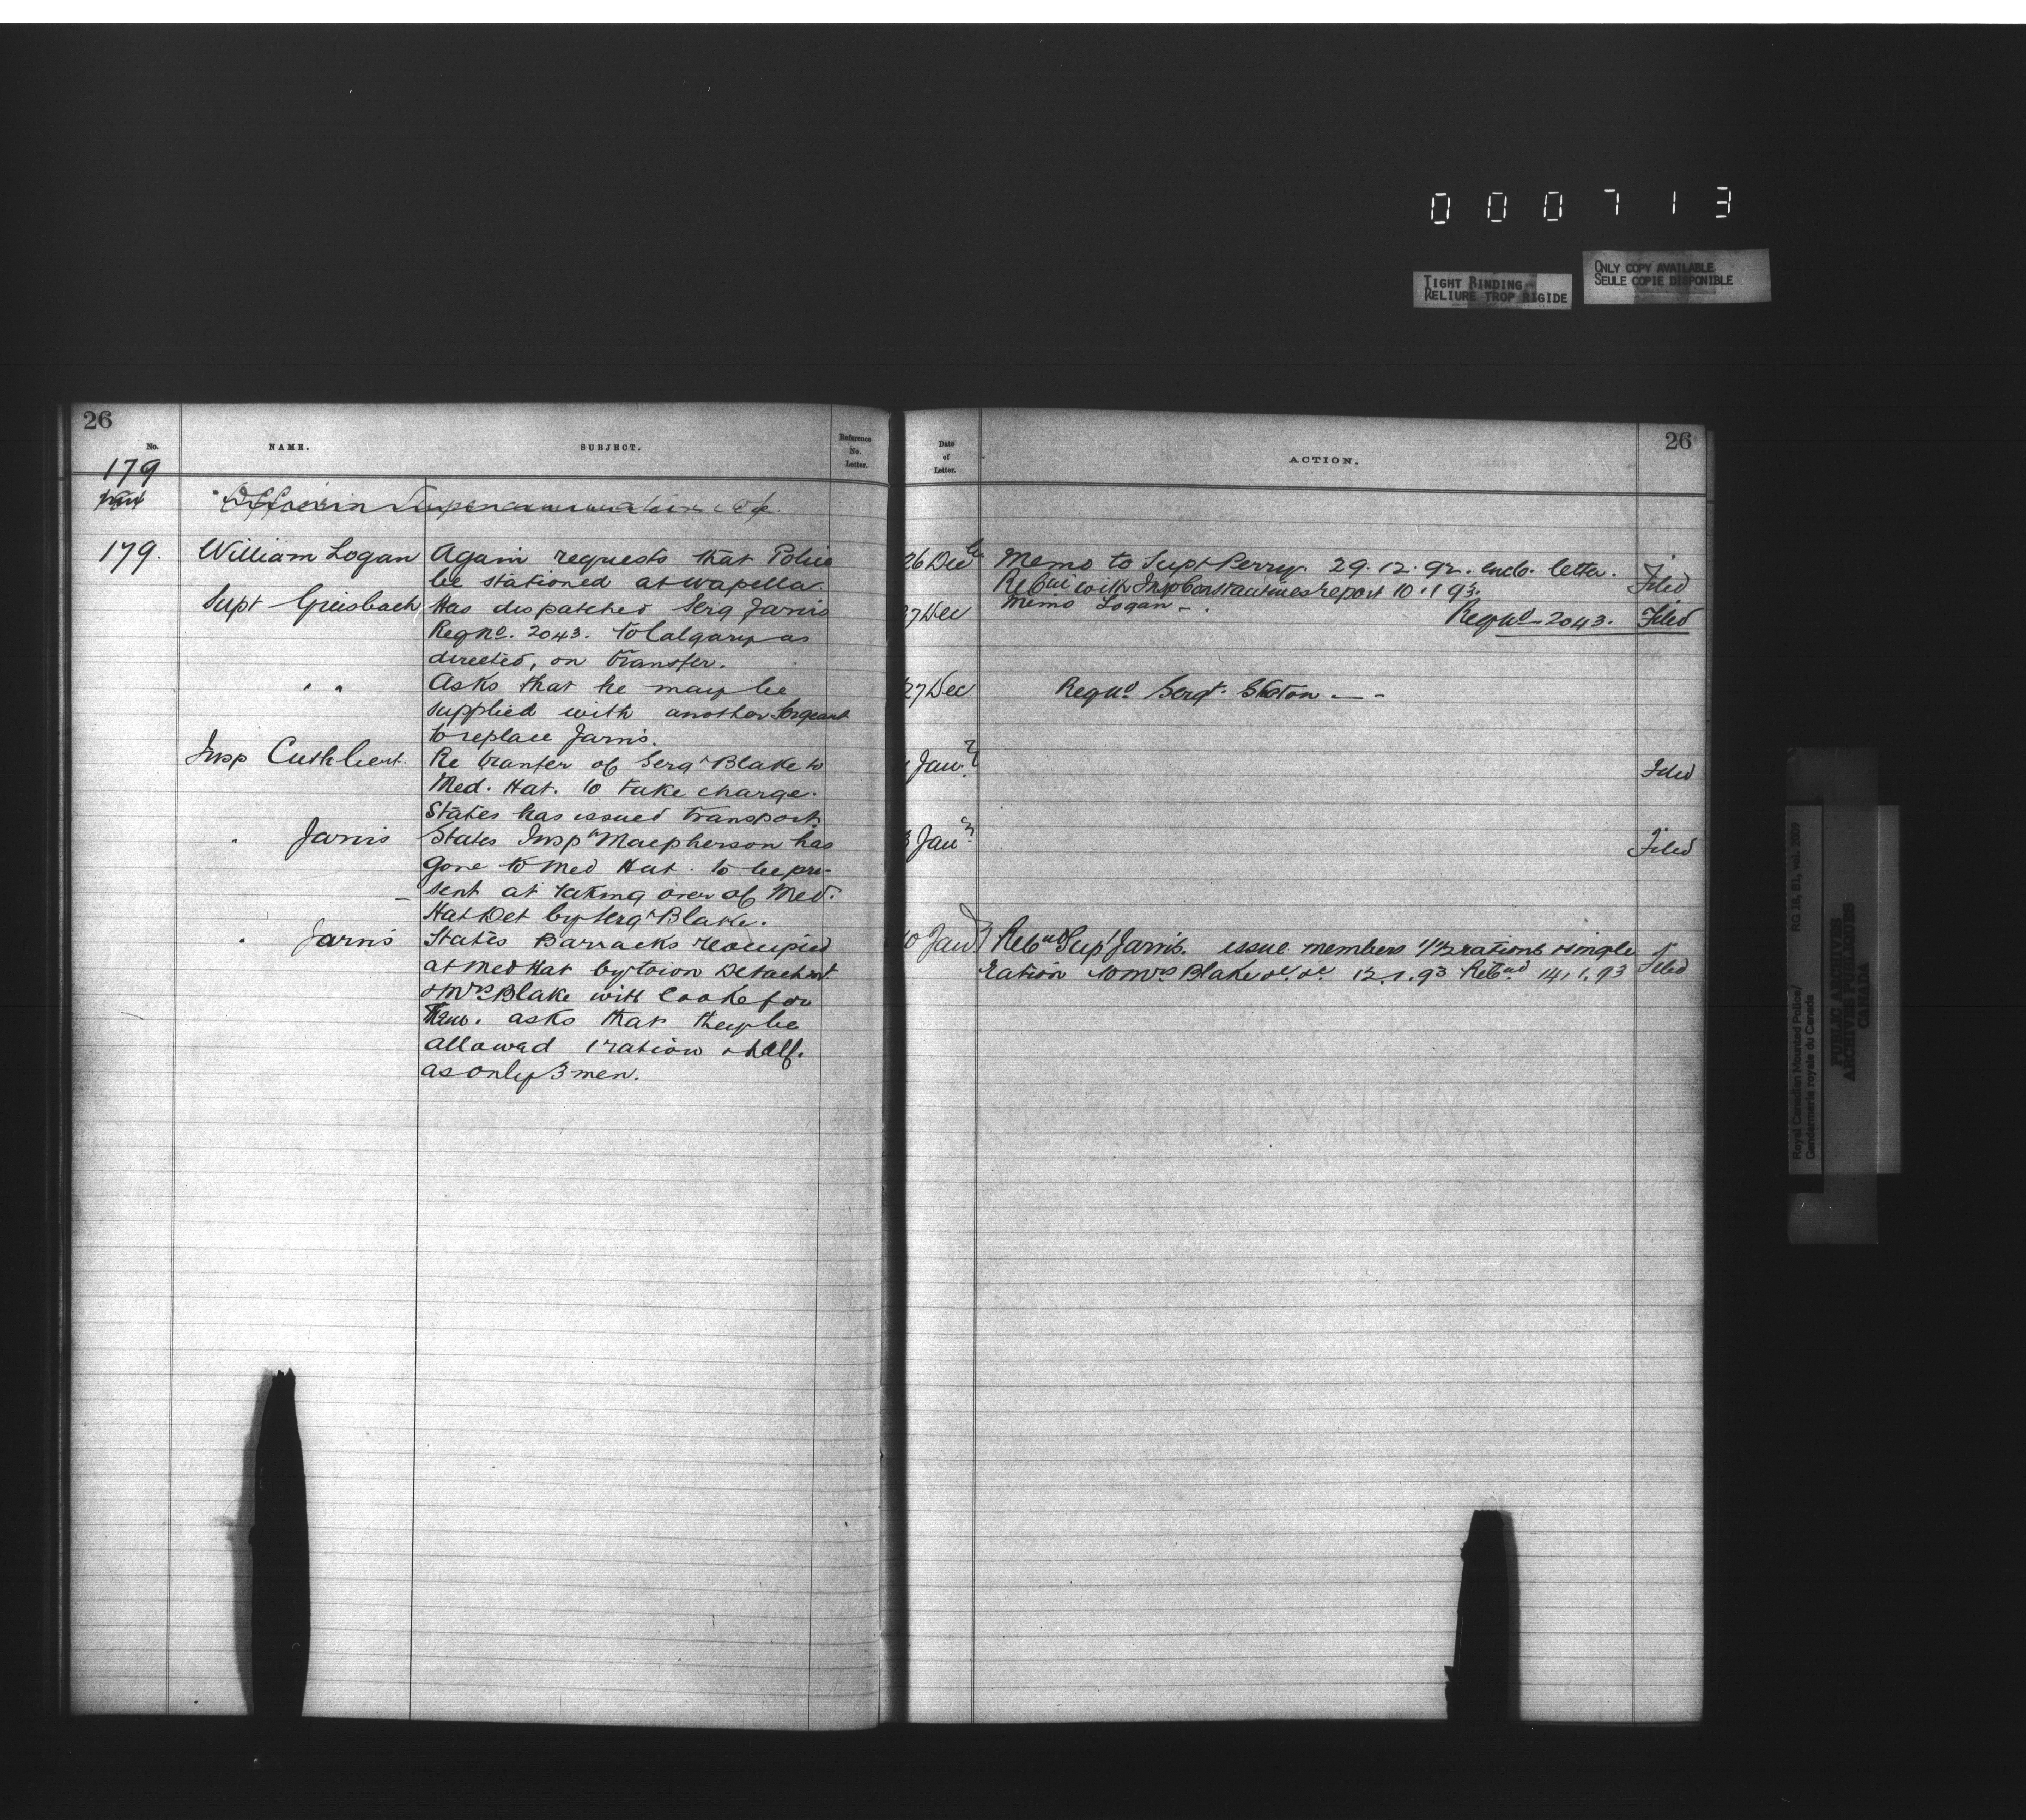 0 0 0 7 1 3
TIGHT BINDING
RELIURE TROP RIGIDE
ONLY COPY AVAILABLE
SEULE COPIE DISPONIBLE
26
No.
NAME.
SUBJECT.
Reference
No.
Letter.
179
179. William Logan Again requests that Police
be stationed at Wapella.
Supt Griesbach Has dispatched Serg Jarvis
Reg No. 2043. to Calgary as
directed, on transfer.
" " Asks that he may be
supplied with another Sergeant
to replace Jarvis.
Insp Cuthbert. Re tranfer of Sergt Blake to
Med. Hat. to take charge.
States has issued transport.
" Jarvis States Insp Macpherson has
gone to Med Hat. to be pre-
sent at taking over of Med.
Hat Det by Sergt Blake.
" Jarvis States Barracks reoccupied
at Med Hat by Detachmt.
& Mrs Blake will cook for
them. asks that they be
allowed 1 ration & half.
as only 3 men.
Date
of
Letter.
ACTION.
26
26 Dec Memo to Supt Perry. 29.12.92. enclo. letter. Filed
with Insp Constantines report 10.1.93.
Memo Logan -
27 Dec Reg No 2043. Filed
27 Dec Reg No Sergt.
Jany Filed
3 Jany Filed
10 Jany Supt Jarvis. issue members 1 1/2 rations & single
ration to Mrs Blake &c &c 12.1.93 14.1.93 Filed
Royal Canadian Mounted Police/
Gendarmerie royale du Canada
RG 18, B1, vol. 2009
PUBLIC ARCHIVES
ARCHIVES PUBLIQUES
CANADA